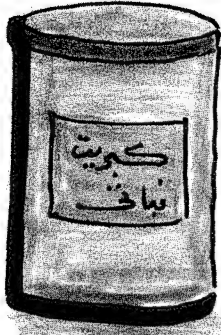 كبريت
نباتى